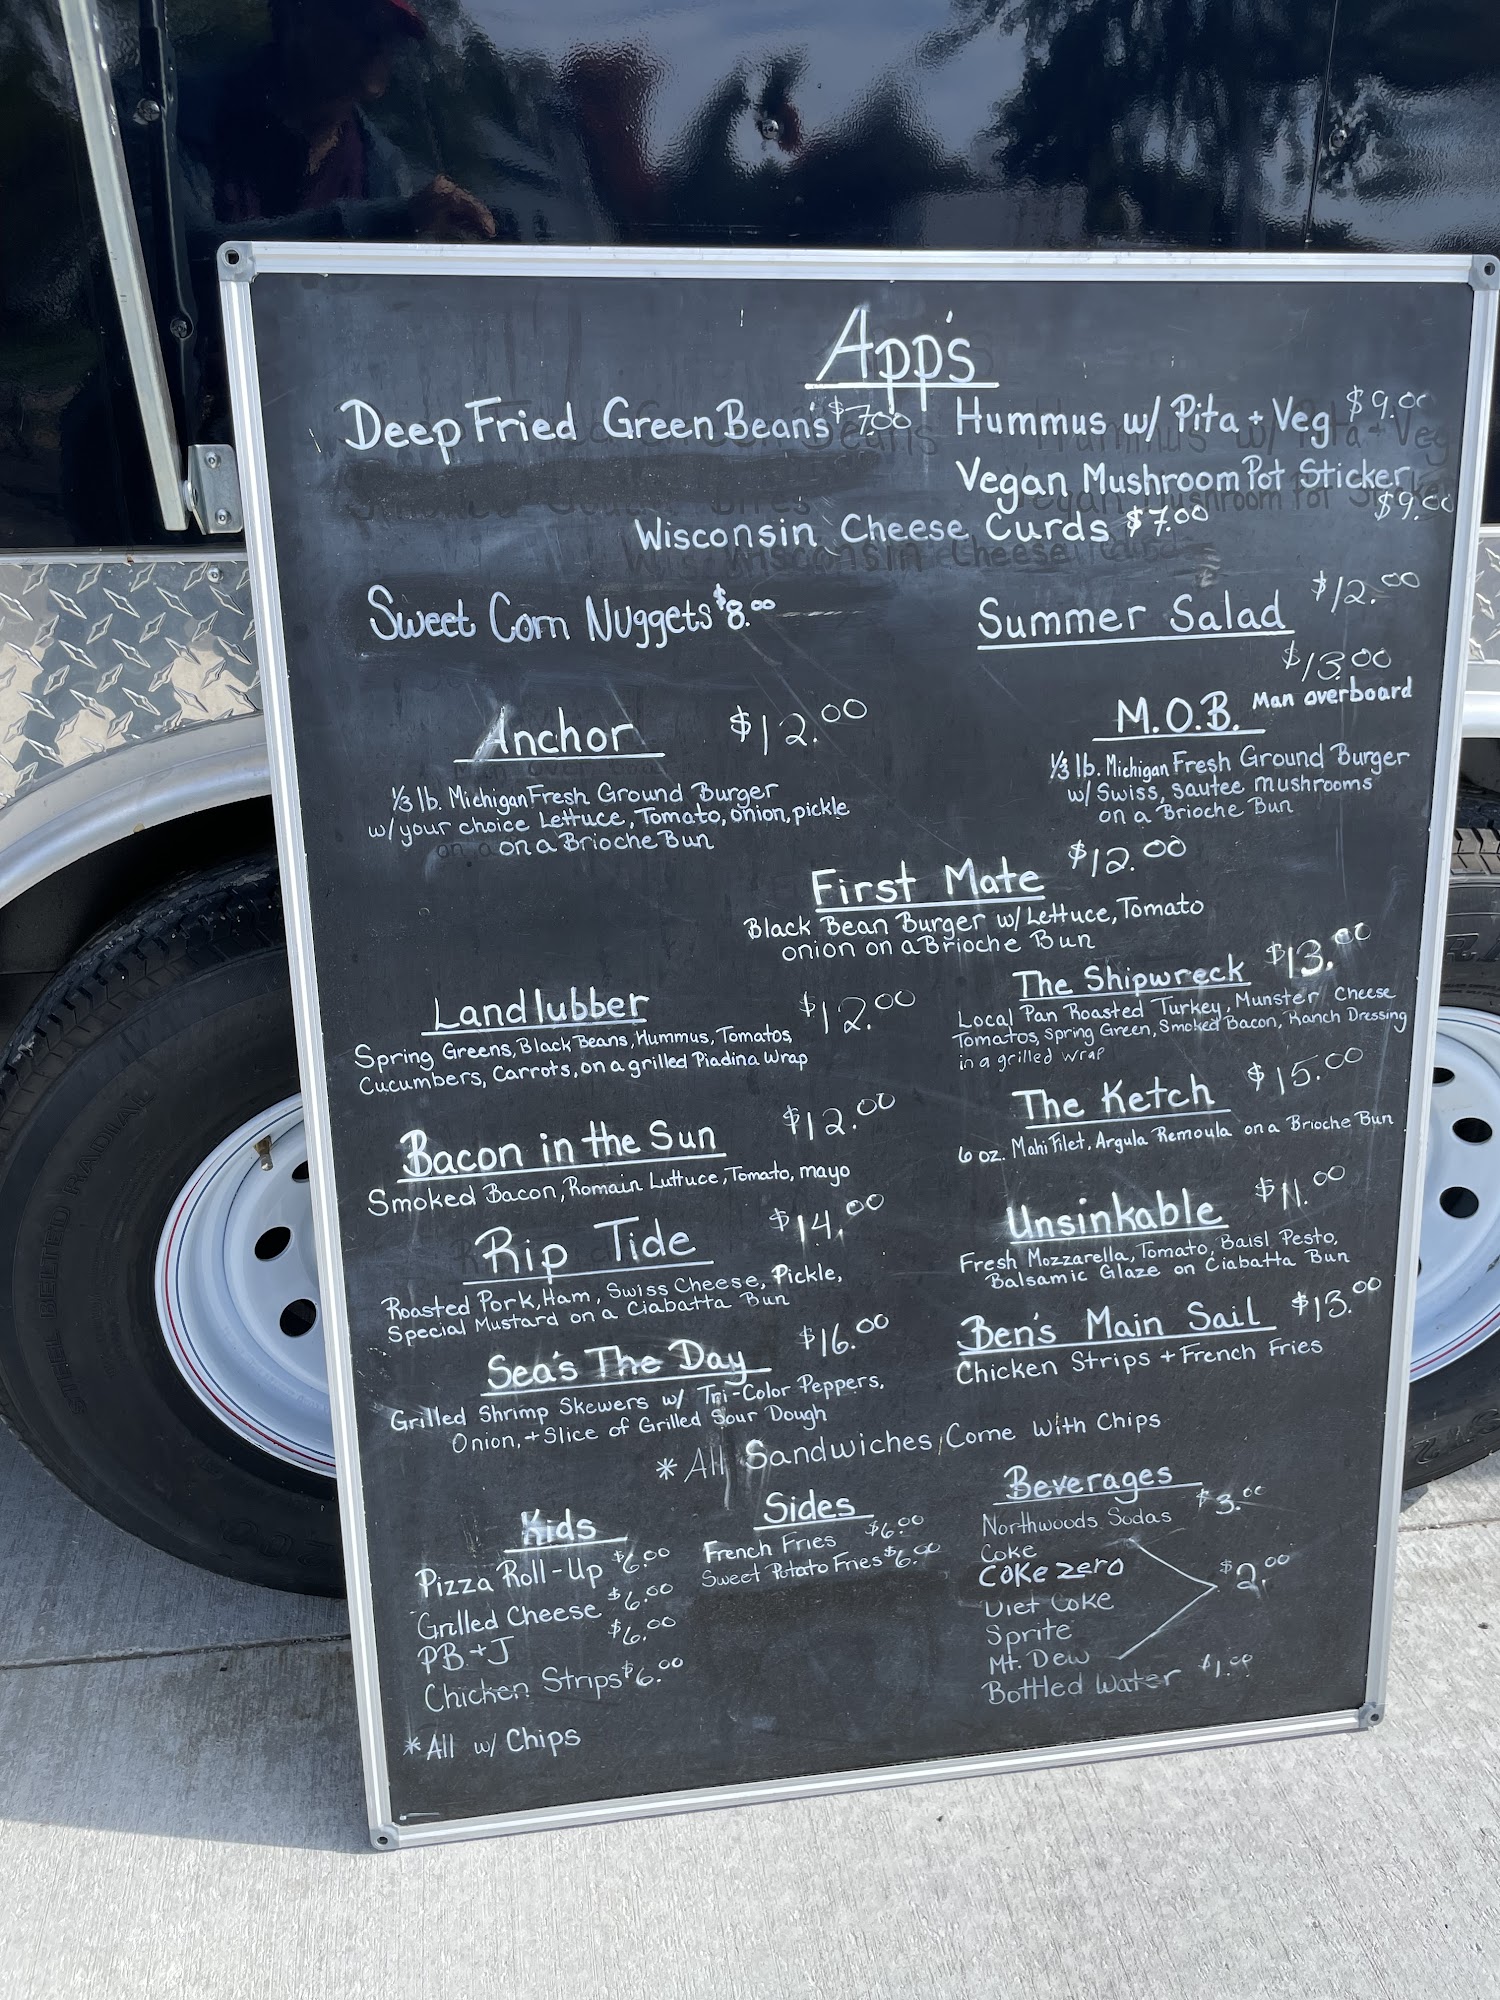 App's
Deep Fried Green Bean's $7.00
Hummus w/ Pita + Veg $9.00
Vegan Mushroom Pot Sticker
$9.00
Wisconsin Cheese Curds $7.00
Sweet Corn Nuggets $8.00
Summer Salad $12.00
Anchor $12.00
1/3 lb. Michigan Fresh Ground Burger
w/ your choice Lettuce, Tomato, onion, pickle
on a Brioche Bun
$13.00
M.O.B. Man overboard
1/3 lb. Michigan Fresh Ground Burger
w/ Swiss, sautee mushrooms
on a Brioche Bun
First Mate $12.00
Black Bean Burger w/ Lettuce, Tomato
onion on a Brioche Bun
Landlubber $12.00
Spring Greens, Black Beans, Hummus, Tomatos,
Cucumbers, Carrots, on a grilled Piadina Wrap
The Shipwreck $13.00
Local Pan Roasted Turkey, Munster Cheese
Tomatos, Spring Green, Smoked Bacon, Ranch Dressing
in a grilled wrap
Bacon in the Sun $12.00
Smoked Bacon, Romain Luttuce, Tomato, mayo
The Ketch $15.00
6 oz. Mahi Filet, Argula Remoula on a Brioche Bun
Rip Tide $14.00
Roasted Pork, Ham, Swiss Cheese, Pickle,
Special Mustard on a Ciabatta Bun
Unsinkable $11.00
Fresh Mozzarella, Tomato, Baisl Pesto,
Balsamic Glaze on Ciabatta Bun
Sea's The Day $16.00
Grilled Shrimp Skewers w/ Tri-Color Peppers,
Onion, + Slice of Grilled Sour Dough
Ben's Main Sail $13.00
Chicken Strips + French Fries
* All Sandwiches Come With Chips
Kids
Pizza Roll-Up $6.00
Grilled Cheese $6.00
PB + J $6.00
Chicken Strips $6.00
* All w/ Chips
Sides
French Fries $6.00
Sweet Potato Fries $6.00
Beverages
Northwoods Sodas $3.00
Coke
Coke zero
Diet Coke $2.00
Sprite
Mt. Dew
Bottled Water $1.00
STEEL BELTED RADIAL